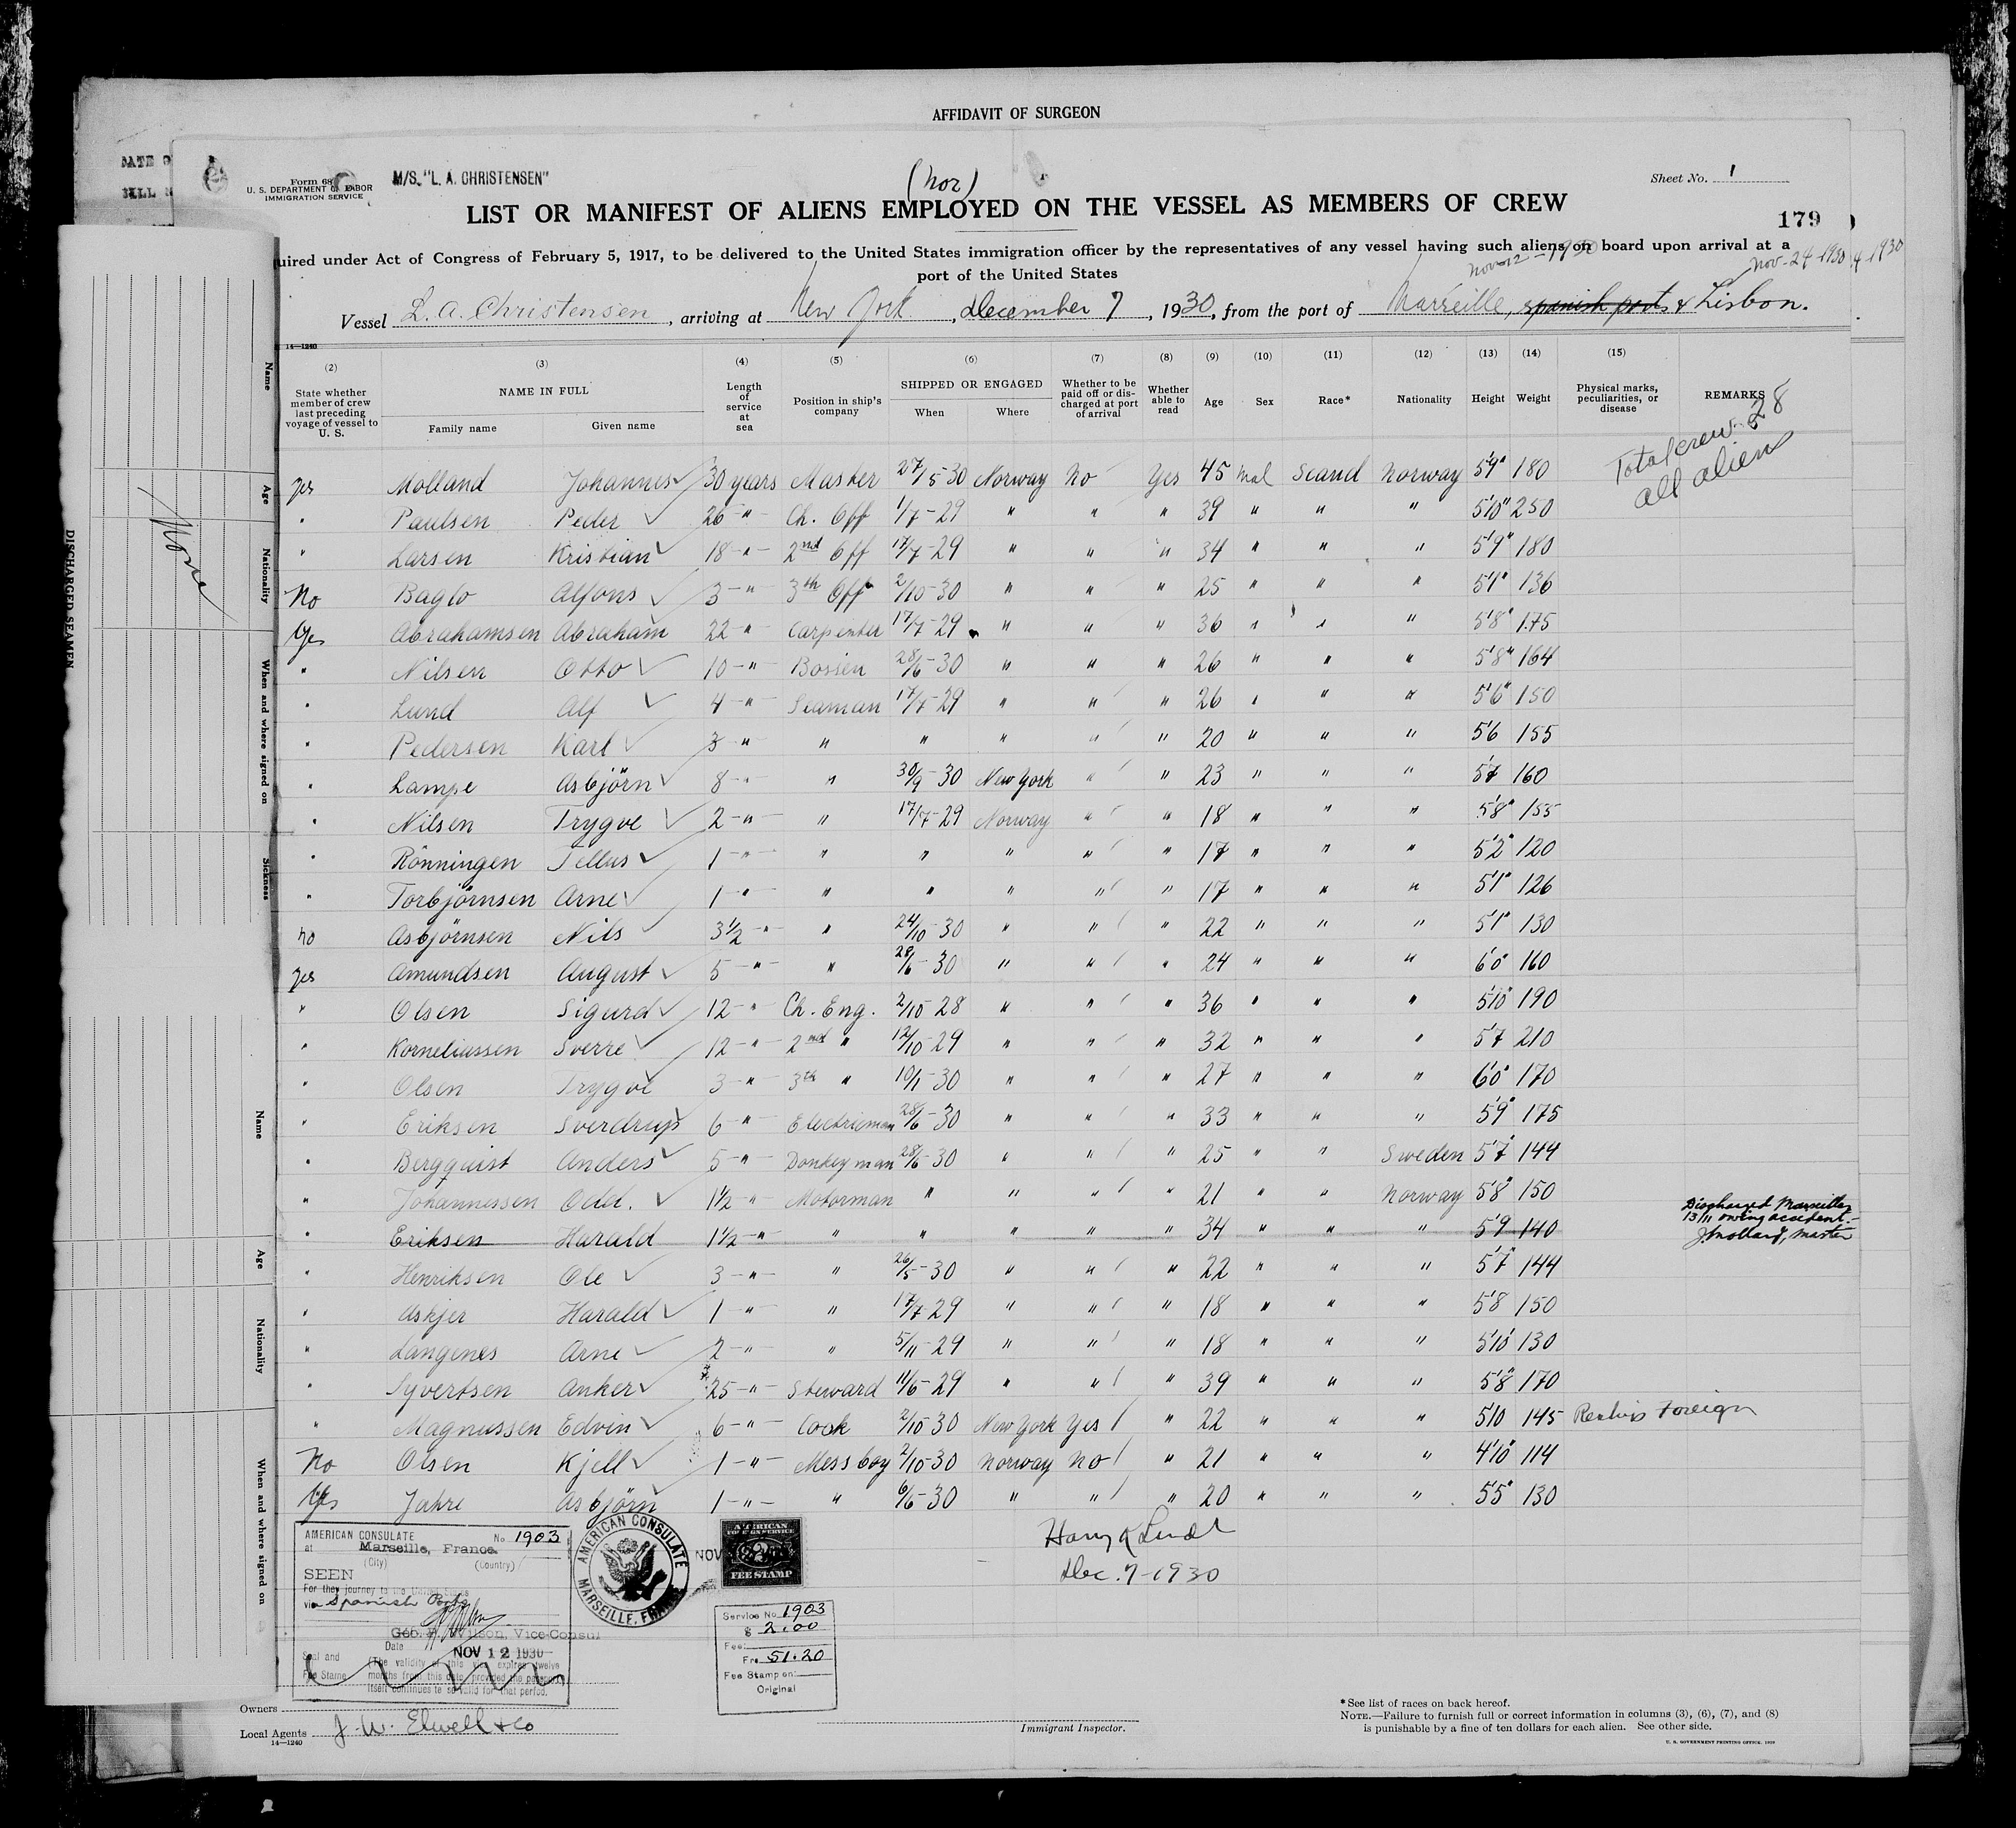 AFFIDAVIT OF SURGEON
Form 68
U. S. DEPARTMENT OF LABOR
IMMIGRATION SERVICE
M/S. "L. A. CHRISTENSEN"
(nor)
Sheet No. 1
LIST OR MANIFEST OF ALIENS EMPLOYED ON THE VESSEL AS MEMBERS OF CREW
179
uired under Act of Congress of February 5, 1917, to be delivered to the United States immigration officer by the representatives of any vessel having such aliens on board upon arrival at a
port of the United States
Nov-12-1930
Nov-24-1930
4 1930
Vessel L. A. Christensen, arriving at New York, December 7, 1930, from the port of Marseille, spanish ports & Lisbon.
14—1240
(2) (3) (4) (5) (6) (7) (8) (9) (10) (11) (12) (13) (14) (15)
State whether member of crew last preceding voyage of vessel to U. S.
NAME IN FULL
Family name Given name
Length of service at sea
Position in ship's company
SHIPPED OR ENGAGED
When Where
Whether to be paid off or discharged at port of arrival
Whether able to read
Age Sex Race* Nationality Height Weight
Physical marks, peculiarities, or disease
REMARKS
Total crew 28
all alien
yes Molland Johannes 30 years Master 27/5 30 Norway No Yes 45 Mal Scand Norway 5'9" 180
" Paulsen Peder 26 -"- Ch. Off 1/7-29 " " " 39 " " " 5'10" 250
" Larsen Kristian 18 -"- 2nd Off 17/7-29 " " " 34 " " " 5'9" 180
No Baglo Alfons 3 -"- 3th Off 2/10-30 " " " 25 " " " 5'1" 136
Yes Abrahamsen Abraham 22 -"- Carpenter 17/7-29 " " " 36 " " " 5'8" 175
" Nilsen Otto 10 -"- Bossen 28/6-30 " " " 26 " " " 5'8" 164
" Lund Alf 4 -"- Seaman 17/7-29 " " " 26 " " " 5'6" 150
" Pedersen Karl 3 -"- " " " " " 20 " " " 5'6 155
" Lampe Asbjörn 8 -"- " 30/9-30 New York " " 23 " " " 5'7 160
" Nilsen Trygve 2 -"- " 17/7-29 Norway " " 18 " " " 5'8" 155
" Rönningen Tellus 1 -"- " " " " " 17 " " " 5'2" 120
" Torbjörnsen Arne 1 -"- " " " " " 17 " " " 5'1" 126
no Asbjörnsen Nils 3½ -"- " 24/10-30 " " " 22 " " " 5'1" 130
yes Amundsen August 5 -"- " 28/6-30 " " " 24 " " " 6'0" 160
" Olsen Sigurd 12 -"- Ch. Eng. 2/10-28 " " " 36 " " " 5'10" 190
" Korneliussen Sverre 12 -"- 2nd " 12/10-29 " " " 32 " " " 5'7 210
" Olsen Trygve 3 -"- 3th " 10/1-30 " " " 27 " " " 6'0" 170
" Eriksen Sverdrup 6 -"- Electricman 28/6-30 " " " 33 " " " 5'9" 175
" Bergquist Anders 5 -"- Donkeyman 28/6-30 " " " 25 " " Sweden 5'7" 144
" Johannessen Odd. 1½ -"- Motorman " " " " 21 " " Norway 5'8" 150
" Eriksen Harald 1½ -"- " " " " " 34 " " " 5'9 140
Discharged Marseilles
13/11 owing accident.
J. Molland, Master
" Henriksen Ole 3 -"- " 26/5-30 " " " 22 " " " 5'7" 144
" Askjer Harald 1 -"- " 17/7-29 " " " 18 " " " 5'8 150
" Langenes Arne 2 -"- " 5/11-29 " " " 18 " " " 5'10" 130
" Syvertsen Anker 25 -"- Steward 11/6-29 " " " 39 " " " 5'8" 170
" Magnussen Edvin 6 -"- Cook 2/10 30 New York Yes " 22 " " " 5'10 145 Reship Foreign
No Olsen Kjell 1 -"- Messboy 2/10-30 Norway No " 21 " " " 4'10" 114
Yes Jahre Asbjörn 1 -"- " 6/6-30 " " " 20 " " " 5'5" 130
AMERICAN CONSULATE No 1903
at Marseille, France.
(City) (Country)
SEEN
For the journey to the United States
via Spanish Ports
Wilson, Vice-Consul
Date NOV 12 1930
Seal and
Fee Stamp
(The validity of this visa expires twelve
months from this date, provided the passport
itself continues to be valid for that period.
AMERICAN CONSULATE
MARSEILLE, FRANCE
NOV
AMERICAN
FOREIGN SERVICE
2
FEE STAMP
Service No. 1903
$ 2.00
Fee:
Frs 51.20
Fee Stamp on:
Original
Dec. 7-1930
Owners
Local Agents J. W. Elwell & Co
14—1240
Immigrant Inspector.
*See list of races on back hereof.
NOTE.—Failure to furnish full or correct information in columns (3), (6), (7), and (8)
is punishable by a fine of ten dollars for each alien. See other side.
U. S. GOVERNMENT PRINTING OFFICE. 1929
DISCHARGED SEAMEN
Name
Age
Nationality
When and where signed on
Sickness
None
Name
Age
Nationality
When and where signed on